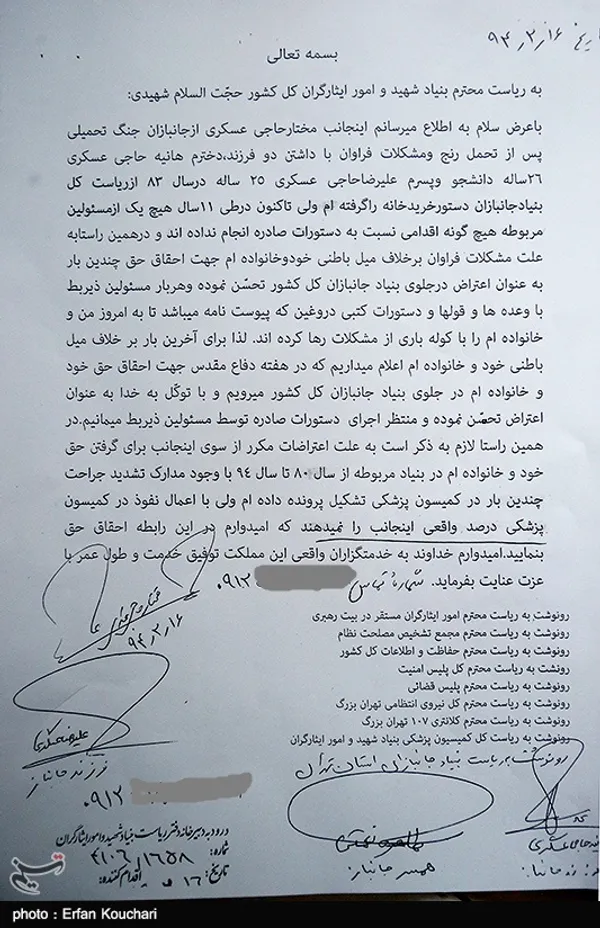 ۹۴٫۲٫۱۶
بسمه تعالی
به ریاست محترم بنیاد شهید و امور ایثارگران کل کشور حجّت السلام شهیدی:
باعرض سلام به اطلاع میرسانم اینجانب مختارحاجی عسکری ازجانبازان جنگ تحمیلی
پس از تحمل رنج ومشکلات فراوان با داشتن دو فرزند،دخترم هانیه حاجی عسکری
۲۶ساله دانشجو وپسرم علیرضاحاجی عسکری ۲۵ ساله درسال ۸۳ ازریاست کل
بنیادجانبازان دستورخریدخانه راگرفته ام ولی تاکنون درطی ۱۱سال هیچ یک ازمسئولین
مربوطه هیچ گونه اقدامی نسبت به دستورات صادره انجام نداده اند و درهمین راستابه
علت مشکلات فراوان برخلاف میل باطنی خودوخانواده ام جهت احقاق حق چندین بار
به عنوان اعتراض درجلوی بنیاد جانبازان کل کشور تحصّن نموده وهربار مسئولین ذیربط
با وعده ها و قولها و دستورات کتبی دروغین که پیوست نامه میباشد تا به امروز من و
خانواده ام را با کوله باری از مشکلات رها کرده اند. لذا برای آخرین بار بر خلاف میل
باطنی خود و خانواده ام اعلام میداریم که در هفته دفاع مقدس جهت احقاق حق خود
و خانواده ام در جلوی بنیاد جانبازان کل کشور میرویم و با توکّل به خدا به عنوان
اعتراض تحصّن نموده و منتظر اجرای دستورات صادره توسط مسئولین ذیربط میمانیم.در
همین راستا لازم به ذکر است به علت اعتراضات مکرر از سوی اینجانب برای گرفتن حق
خود و خانواده ام در بنیاد مربوطه از سال ۸۰ تا سال ۹۴ با وجود مدارک تشدید جراحت
چندین بار در کمیسون پزشکی تشکیل پرونده داده ام ولی با اعمال نفوذ در کمیسون
پزشکی درصد واقعی اینجانب را نمیدهند که امیدوارم در این رابطه احقاق حق
بنمایید.امیدوارم خداوند به خدمتگزاران واقعی این مملکت توفیق خدمت و طول عمر با
عزت عنایت بفرماید. شماره تماس ۰۹۱۲
۹۴٫۲٫۱۶
رونوشت به ریاست محترم امور ایثارگران مستقر در بیت رهبری
رونوشت به ریاست محترم مجمع تشخیص مصلحت نظام
رونوشت به ریاست محترم حفاظت و اطلاعات کل کشور
رونشت به ریاست محترم کل پلیس امنیت
رونوشت به ریاست محترم پلیس قضائی
رونوشت به ریاست محترم کل نیروی انتظامی تهران بزرگ
رونوشت به ریاست محترم کلانتری ۱۰۷ تهران بزرگ
رونوشت به ریاست کل کمیسیون پزشکی بنیاد شهید و امور ایثارگران
رونوشت به ریاست بنیاد جانبازان استان تهران
علیرضا عسکری
فرزند جانباز
۰۹۱۲
حاجی عسکری
فرزند جانباز
همسر جانباز
ورود به دبیرخانه دفتر ریاست بنیاد شهید و امور ایثارگران
شماره: ۴۱۰۶/۱۶۵۸
تاریخ: ۱۶ اقدام کننده:
تسنیم
photo : Erfan Kouchari